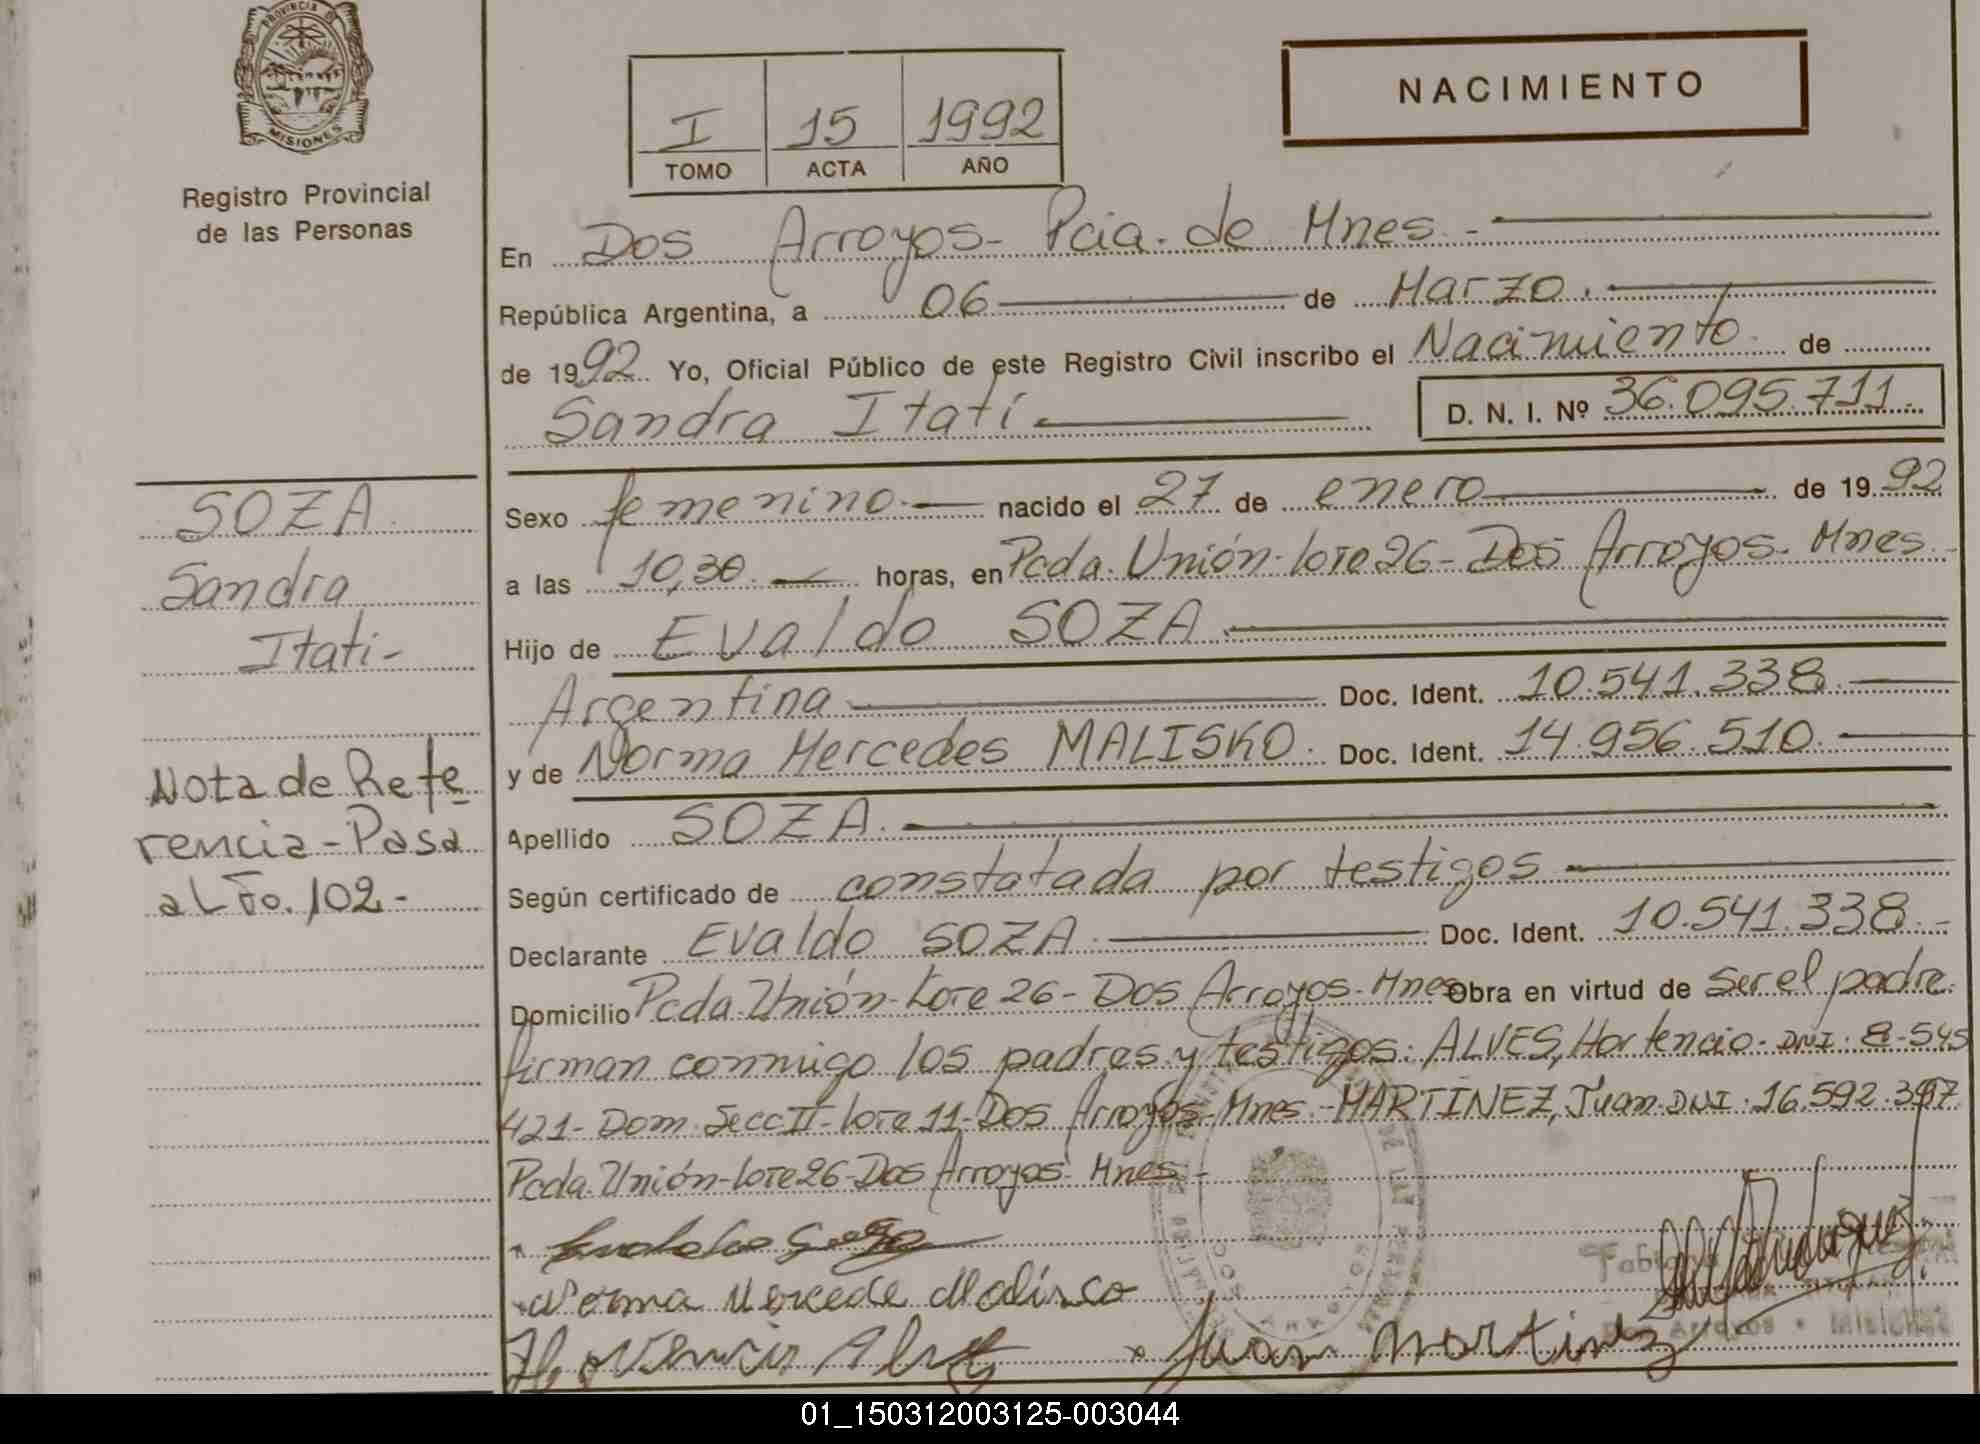 PROVINCIA DE
MISIONES
Registro Provincial
de las Personas
I 15 1992
TOMO ACTA AÑO
NACIMIENTO
En Dos Arroyos - Pcia. de Mnes. -
República Argentina, a 06 de Marzo.
de 1992. Yo, Oficial Público de este Registro Civil inscribo el Nacimiento de
Sandra Itatí D. N. I. Nº 36.095.711.
SOZA
Sandra
Itati-
Nota de Refe
rencia - Pasa
al Fo. 102 -
Sexo femenino. nacido el 27 de enero de 1992
a las 10,30 horas, en Pcda. Unión - lote 26 - Dos Arroyos - Mnes.
Hijo de Evaldo SOZA.
Argentina Doc. Ident. 10.541.338
y de Norma Mercedes MALISKO. Doc. Ident. 14.956.510.
Apellido SOZA.
Según certificado de constatada por testigos
Declarante Evaldo SOZA Doc. Ident. 10.541.338. -
Domicilio Pcda. Unión - Lote 26 - Dos Arroyos - Mnes Obra en virtud de ser el padre.
firman conmigo los padres y testigos: ALVES, Hortencio - DNI: 8-545
421 - Dom. Secc II - lote 11 - Dos Arroyos - Mnes. - MARTINEZ, Juan. DNI. 16.592.397
Pcda. Unión - lote 26 - Dos Arroyos - Mnes -
Norma Mercede Malisco
Juan Martinez
01_150312003125-003044